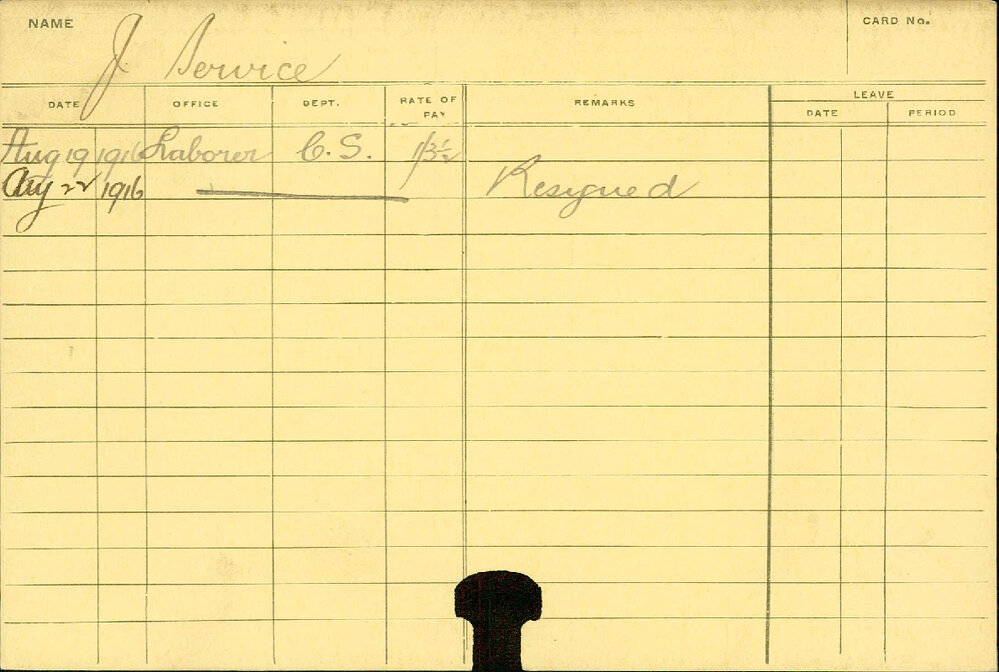 NAME J. Service CARD No.
DATE OFFICE DEPT. RATE OF PAY REMARKS LEAVE
DATE PERIOD
Aug 19 1916 Laborer C.S.
Aug 22 1916 Resigned